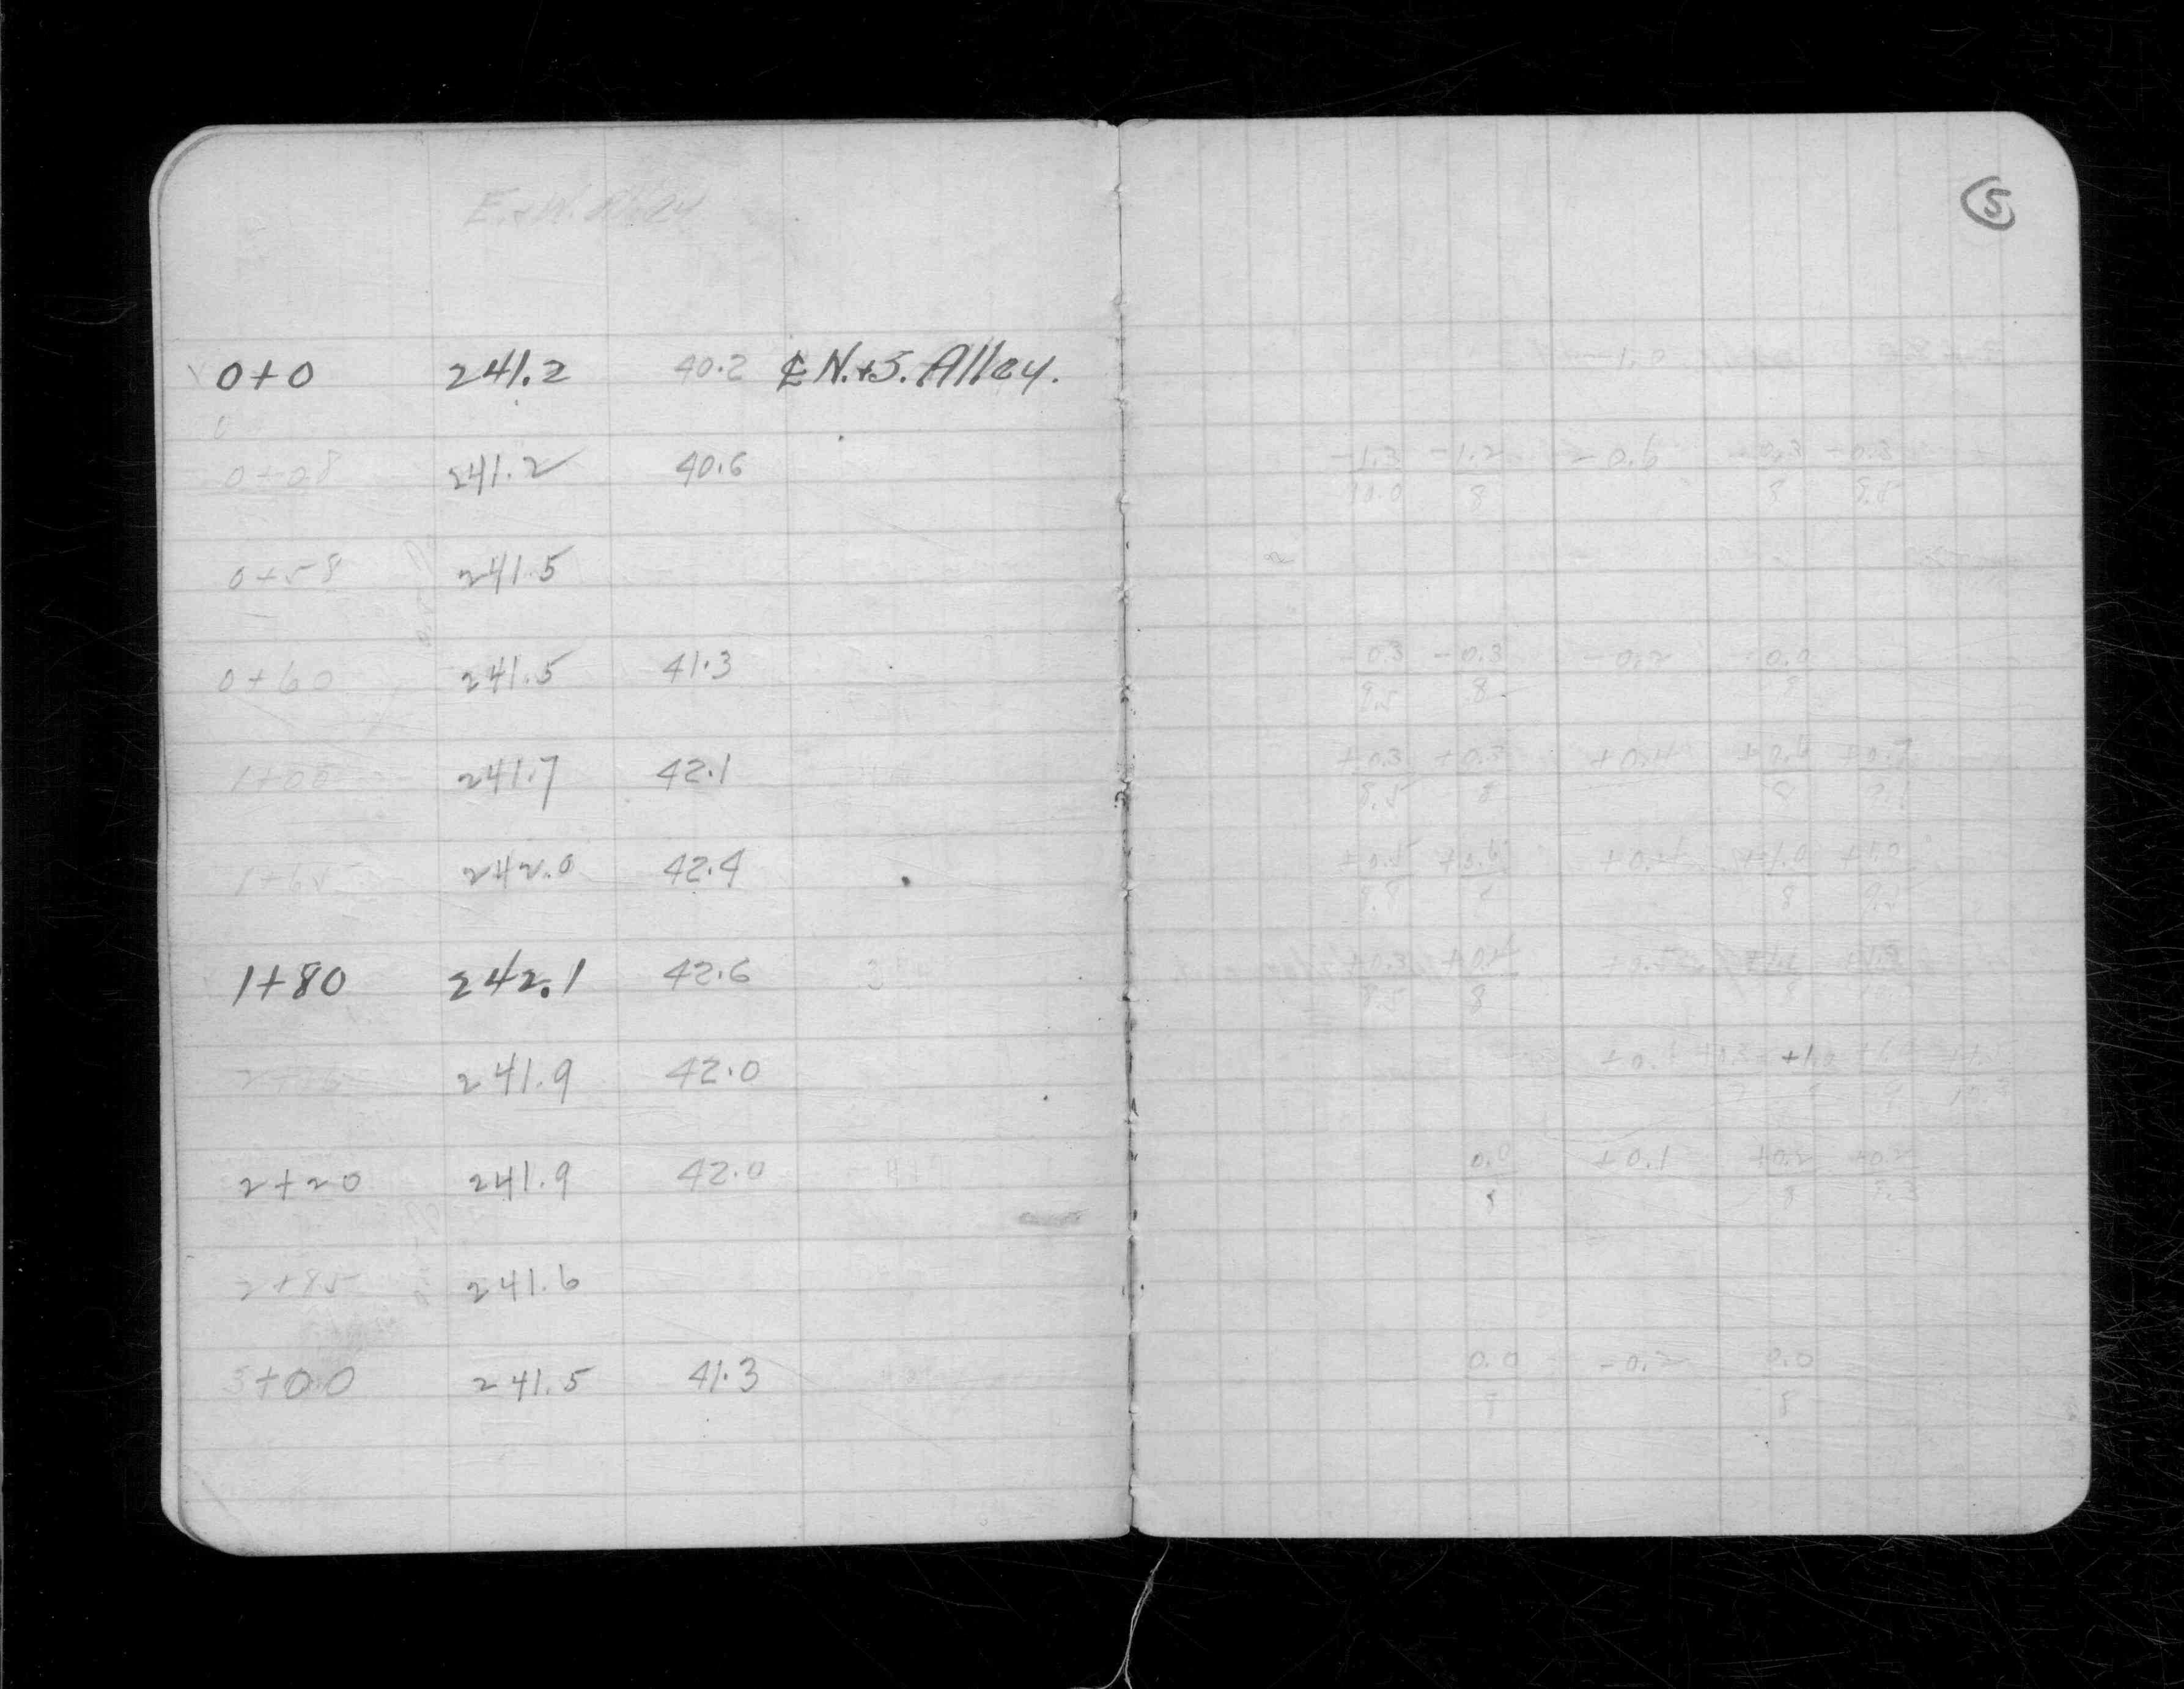 E.&W. Alley
0+0 241.2 40.2 ℄ N.+S. Alley.
0
0+08 241.2 40.6
0+58 241.5
0+60 241.5 41.3
1+00 241.7 42.1
1+65 242.0 42.4
1+80 242.1 42.6
241.9 42.0
2+20 241.9 42.0
2+85 241.6
3+00 241.5 41.3
5
-1.0
-1.3 -1.2 -0.6 -0.3 -0.3
10.0 8 8 9.5
-0.3 -0.3 -0.2 0.0
9.5 8 8
+0.3 +0.3 +0.4 +0.7
8.5 8 8 9.1
+0.5 +0.6 +0.4 +1.0 +1.0
8.8 8 8 9.5
+0.3 +0.4 +0.5 +1.1
8.5 8 8
+1.0
0.0 +0.1 +0.2 +0.2
8 8 9.3
0.0 -0.2 0.0
8 8